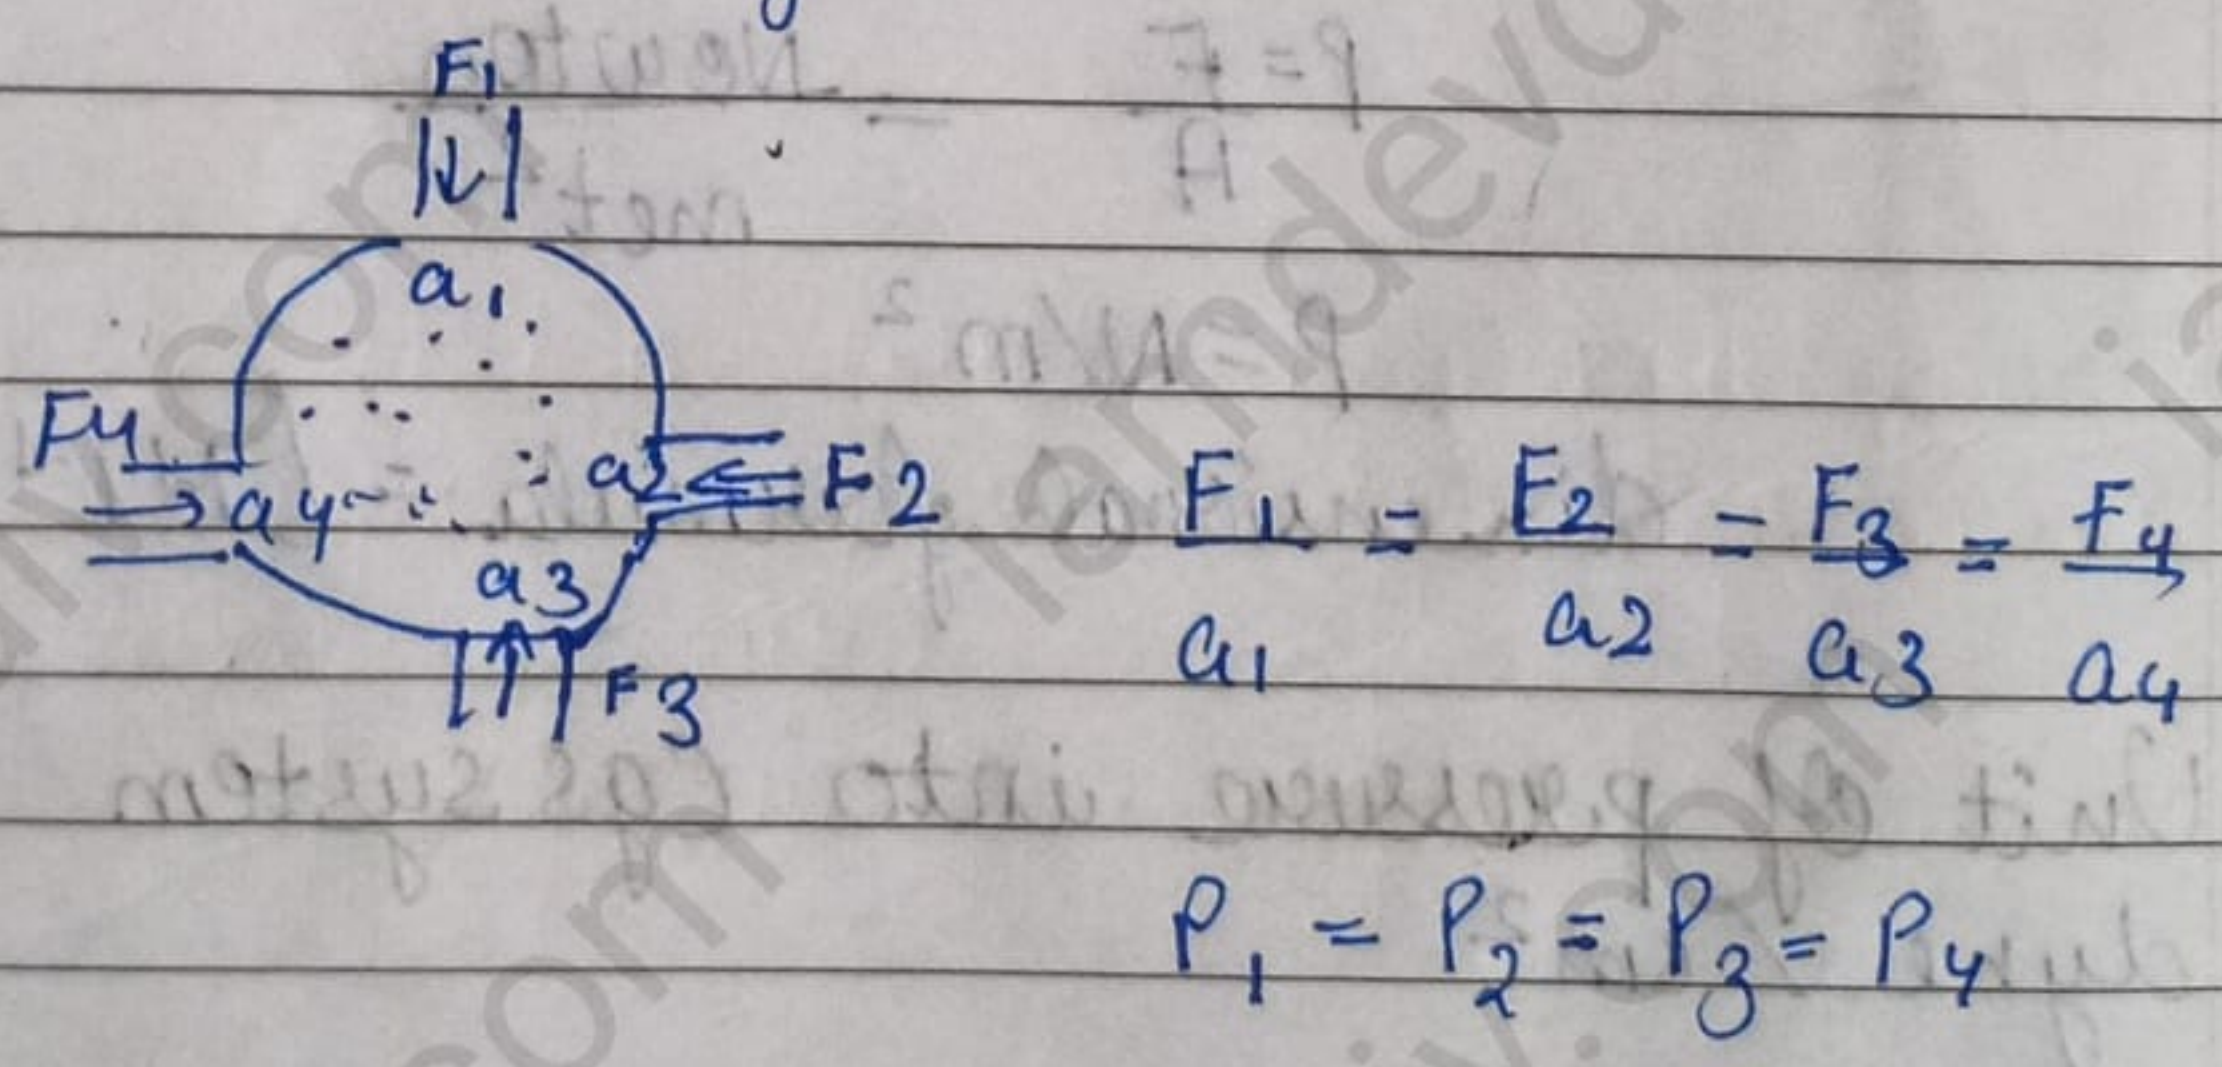 F1
a1
F4
a4
a2
F2
a3
F3
F1/a1 = F2/a2 = F3/a3 = F4/a4
P1 = P2 = P3 = P4